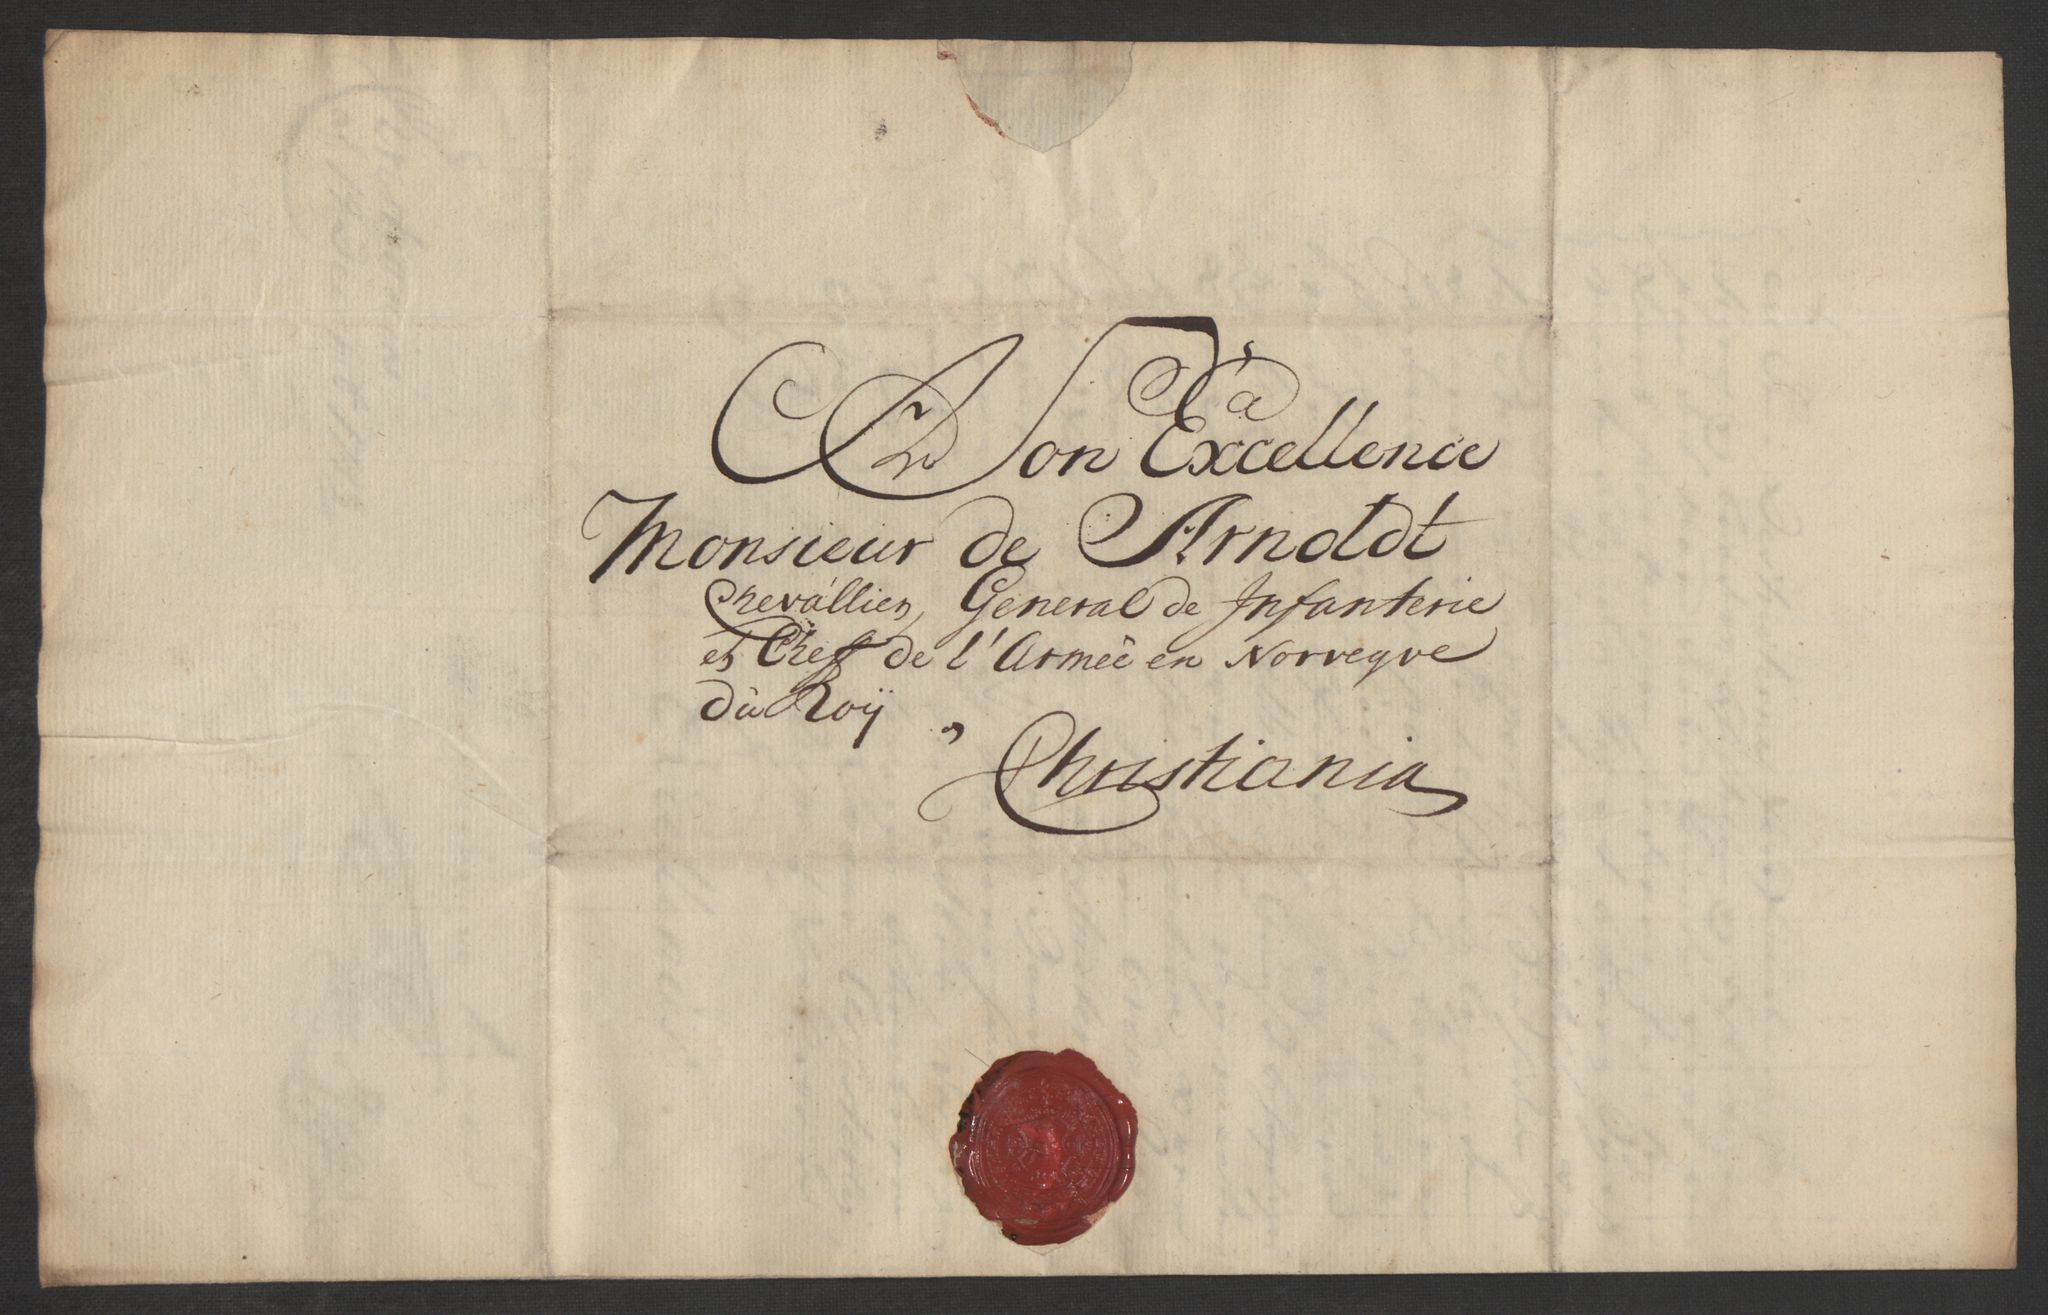 à
A Son Excellence
Monsieur de Arnoldt
Chevallier, General de Infanterie
et Cheff de l'Armèe en Norvegve
du Roÿ
Christiania